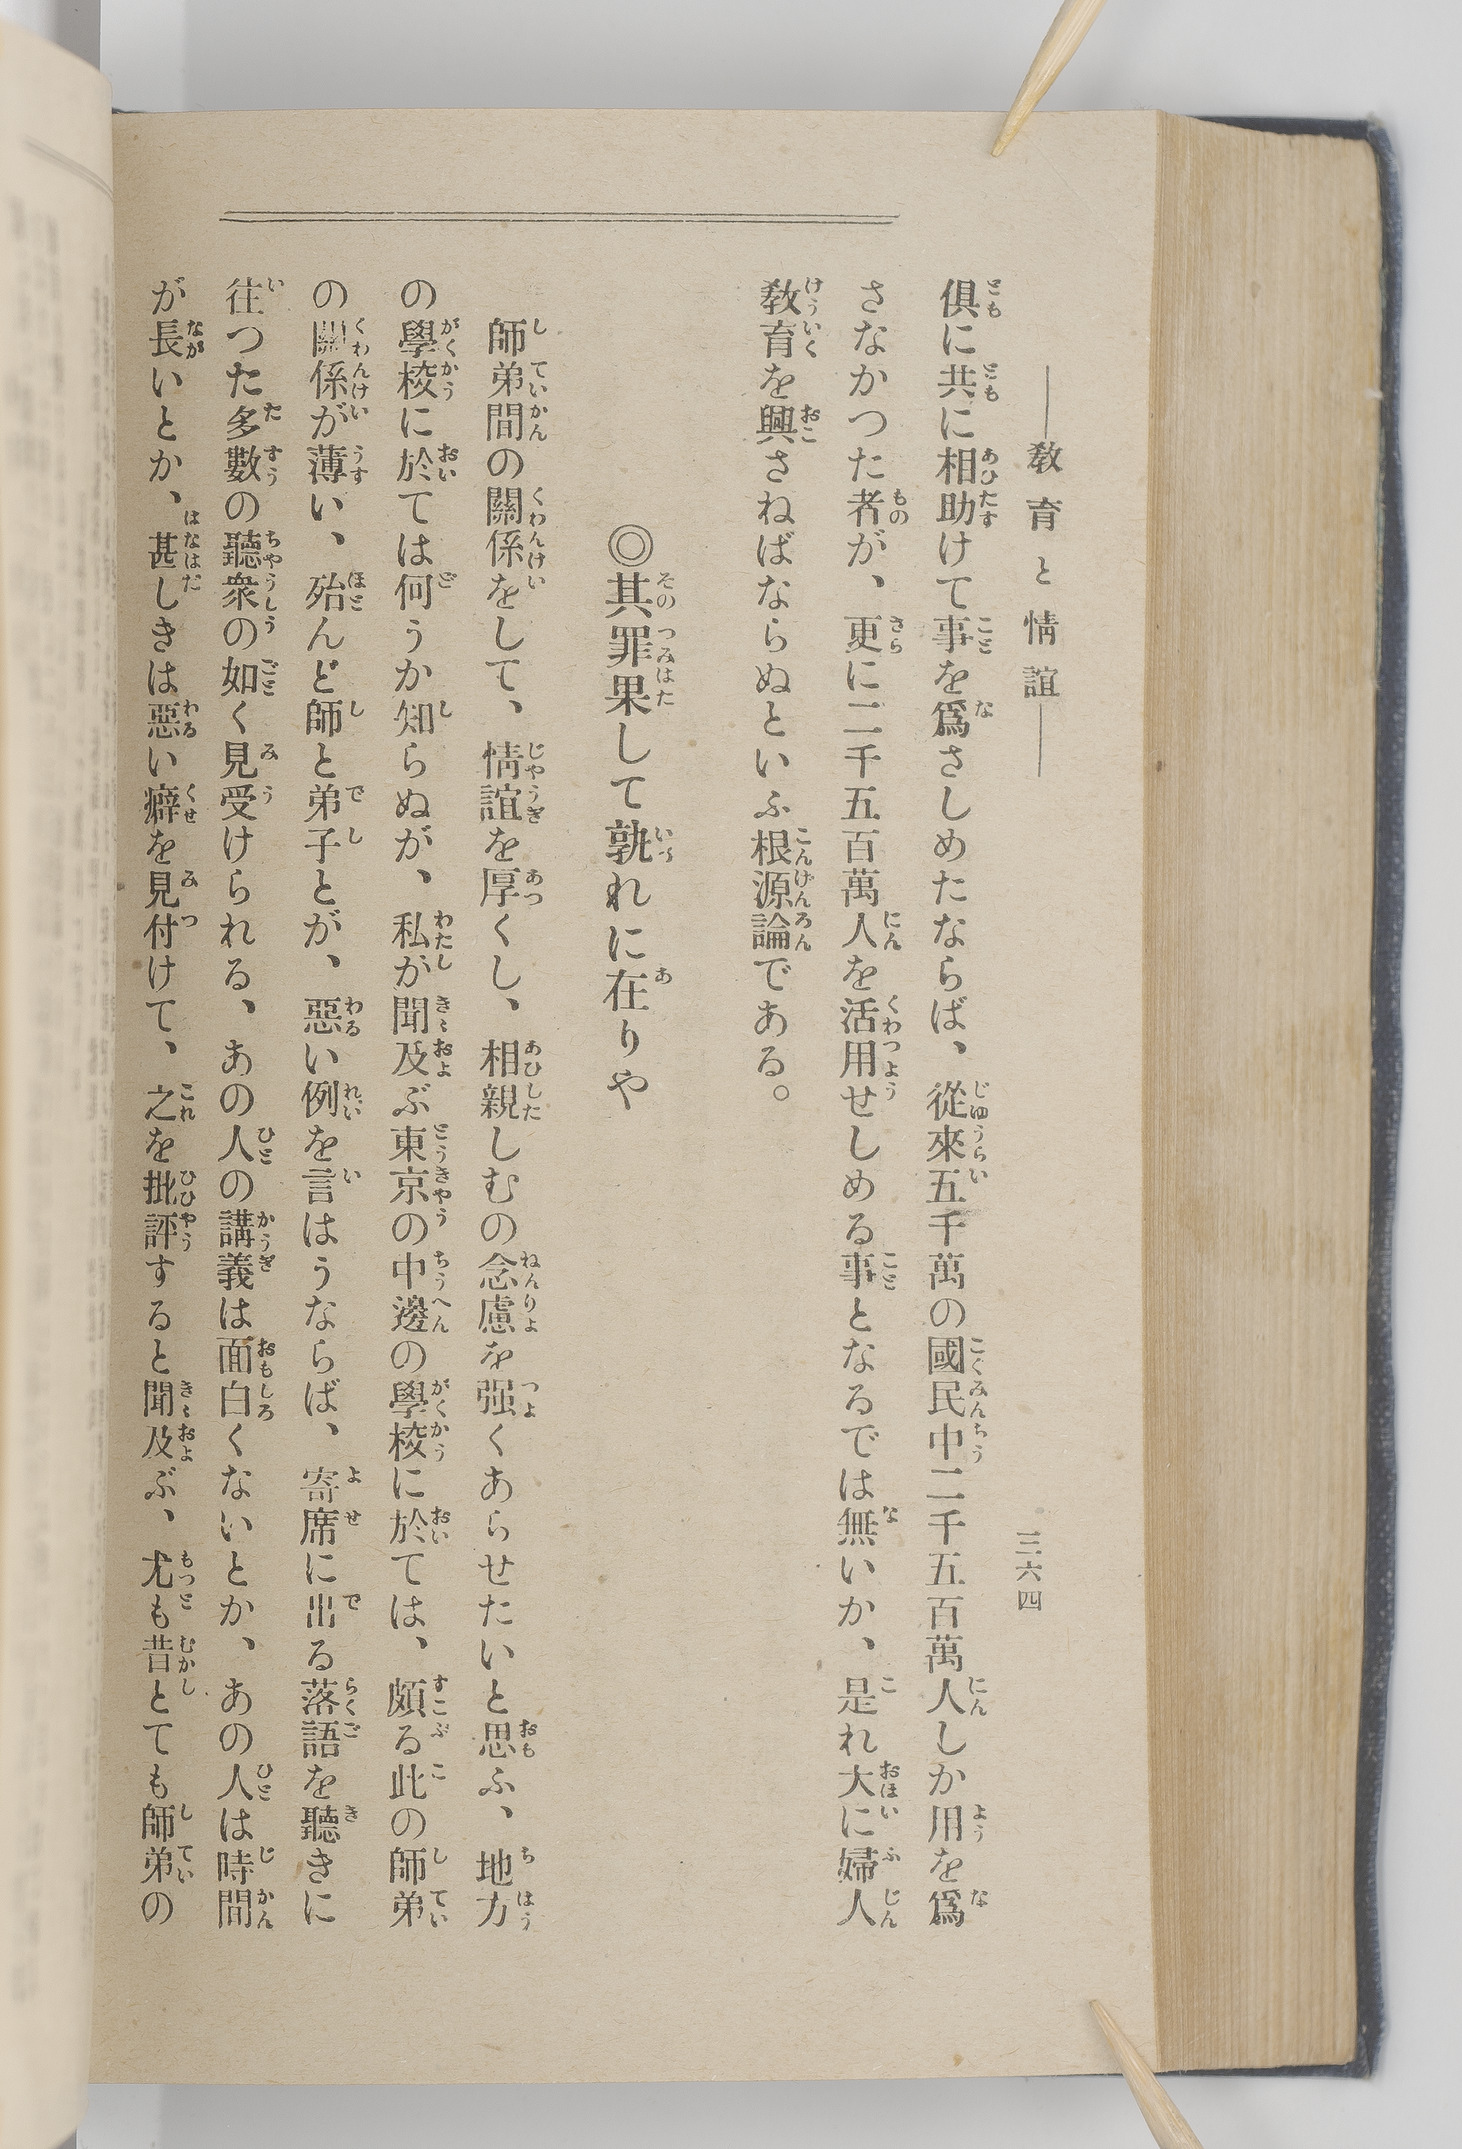 ―敎育と情誼―
三六四
俱に共に相助けて事を爲さしめたならば、從來五千萬の國民中二千五百萬人しか用を爲
さなかつた者が、更に二千五百萬人を活用せしめる事となるでは無いか、是れ大に婦人
敎育を興さねばならぬといふ根源論である。
◎其罪果して孰れに在りや
師弟間の關係をして、情誼を厚くし、相親しむの念慮を强くあらせたいと思ふ、地方
の學校に於ては何うか知らぬが、私が聞及ぶ東京の中邊の學校に於ては、頗る此の師弟
の關係が薄い、殆んど師と弟子とが、惡い例を言はうならば、寄席に出る落語を聽きに
往つた多數の聽衆の如く見受けられる、あの人の講義は面白くないとか、あの人は時間
が長いとか、甚しきは惡い癖を見付けて、之を批評すると聞及ぶ、尤も昔とても師弟の